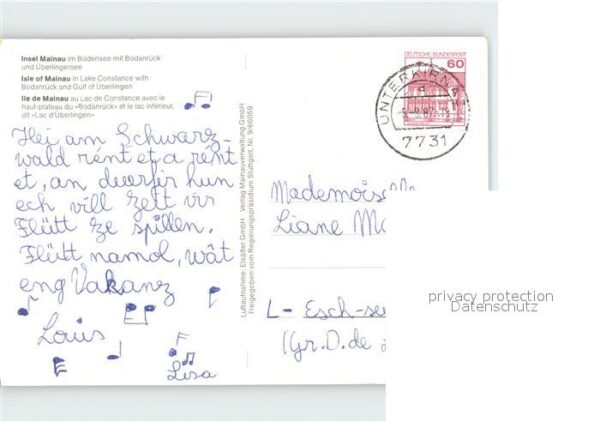 Insel Mainau im Bodensee mit Bodanrück
und Überlingersee
Isle of Mainau in Lake Constance with
Bodanrück and Gulf of Überlingen
Ile de Mainau au Lac de Constance avec le
haut-plateau du «Bodanrück» et le lac inférieur,
dit «Lac d'Überlingen»
Hei am Schwarz-
wald rént et a rént
et, an duerfir hun
ech vill Zeit vir
Flütt ze spillen.
Flütt namol, wât
eng Vakanz
Louis
Lisa
Luftaufnahme: Elsäßer GmbH Verlag Mainauverwaltung GmbH
Freigegeben vom Regierungspräsidium Stuttgart, Nr. 9/86059
DEUTSCHE BUNDESPOST
60
UNTERKIRNA
7731
Mademoise
Liane M
L- Esch-s
(Gr.D. de
privacy protection
Datenschutz